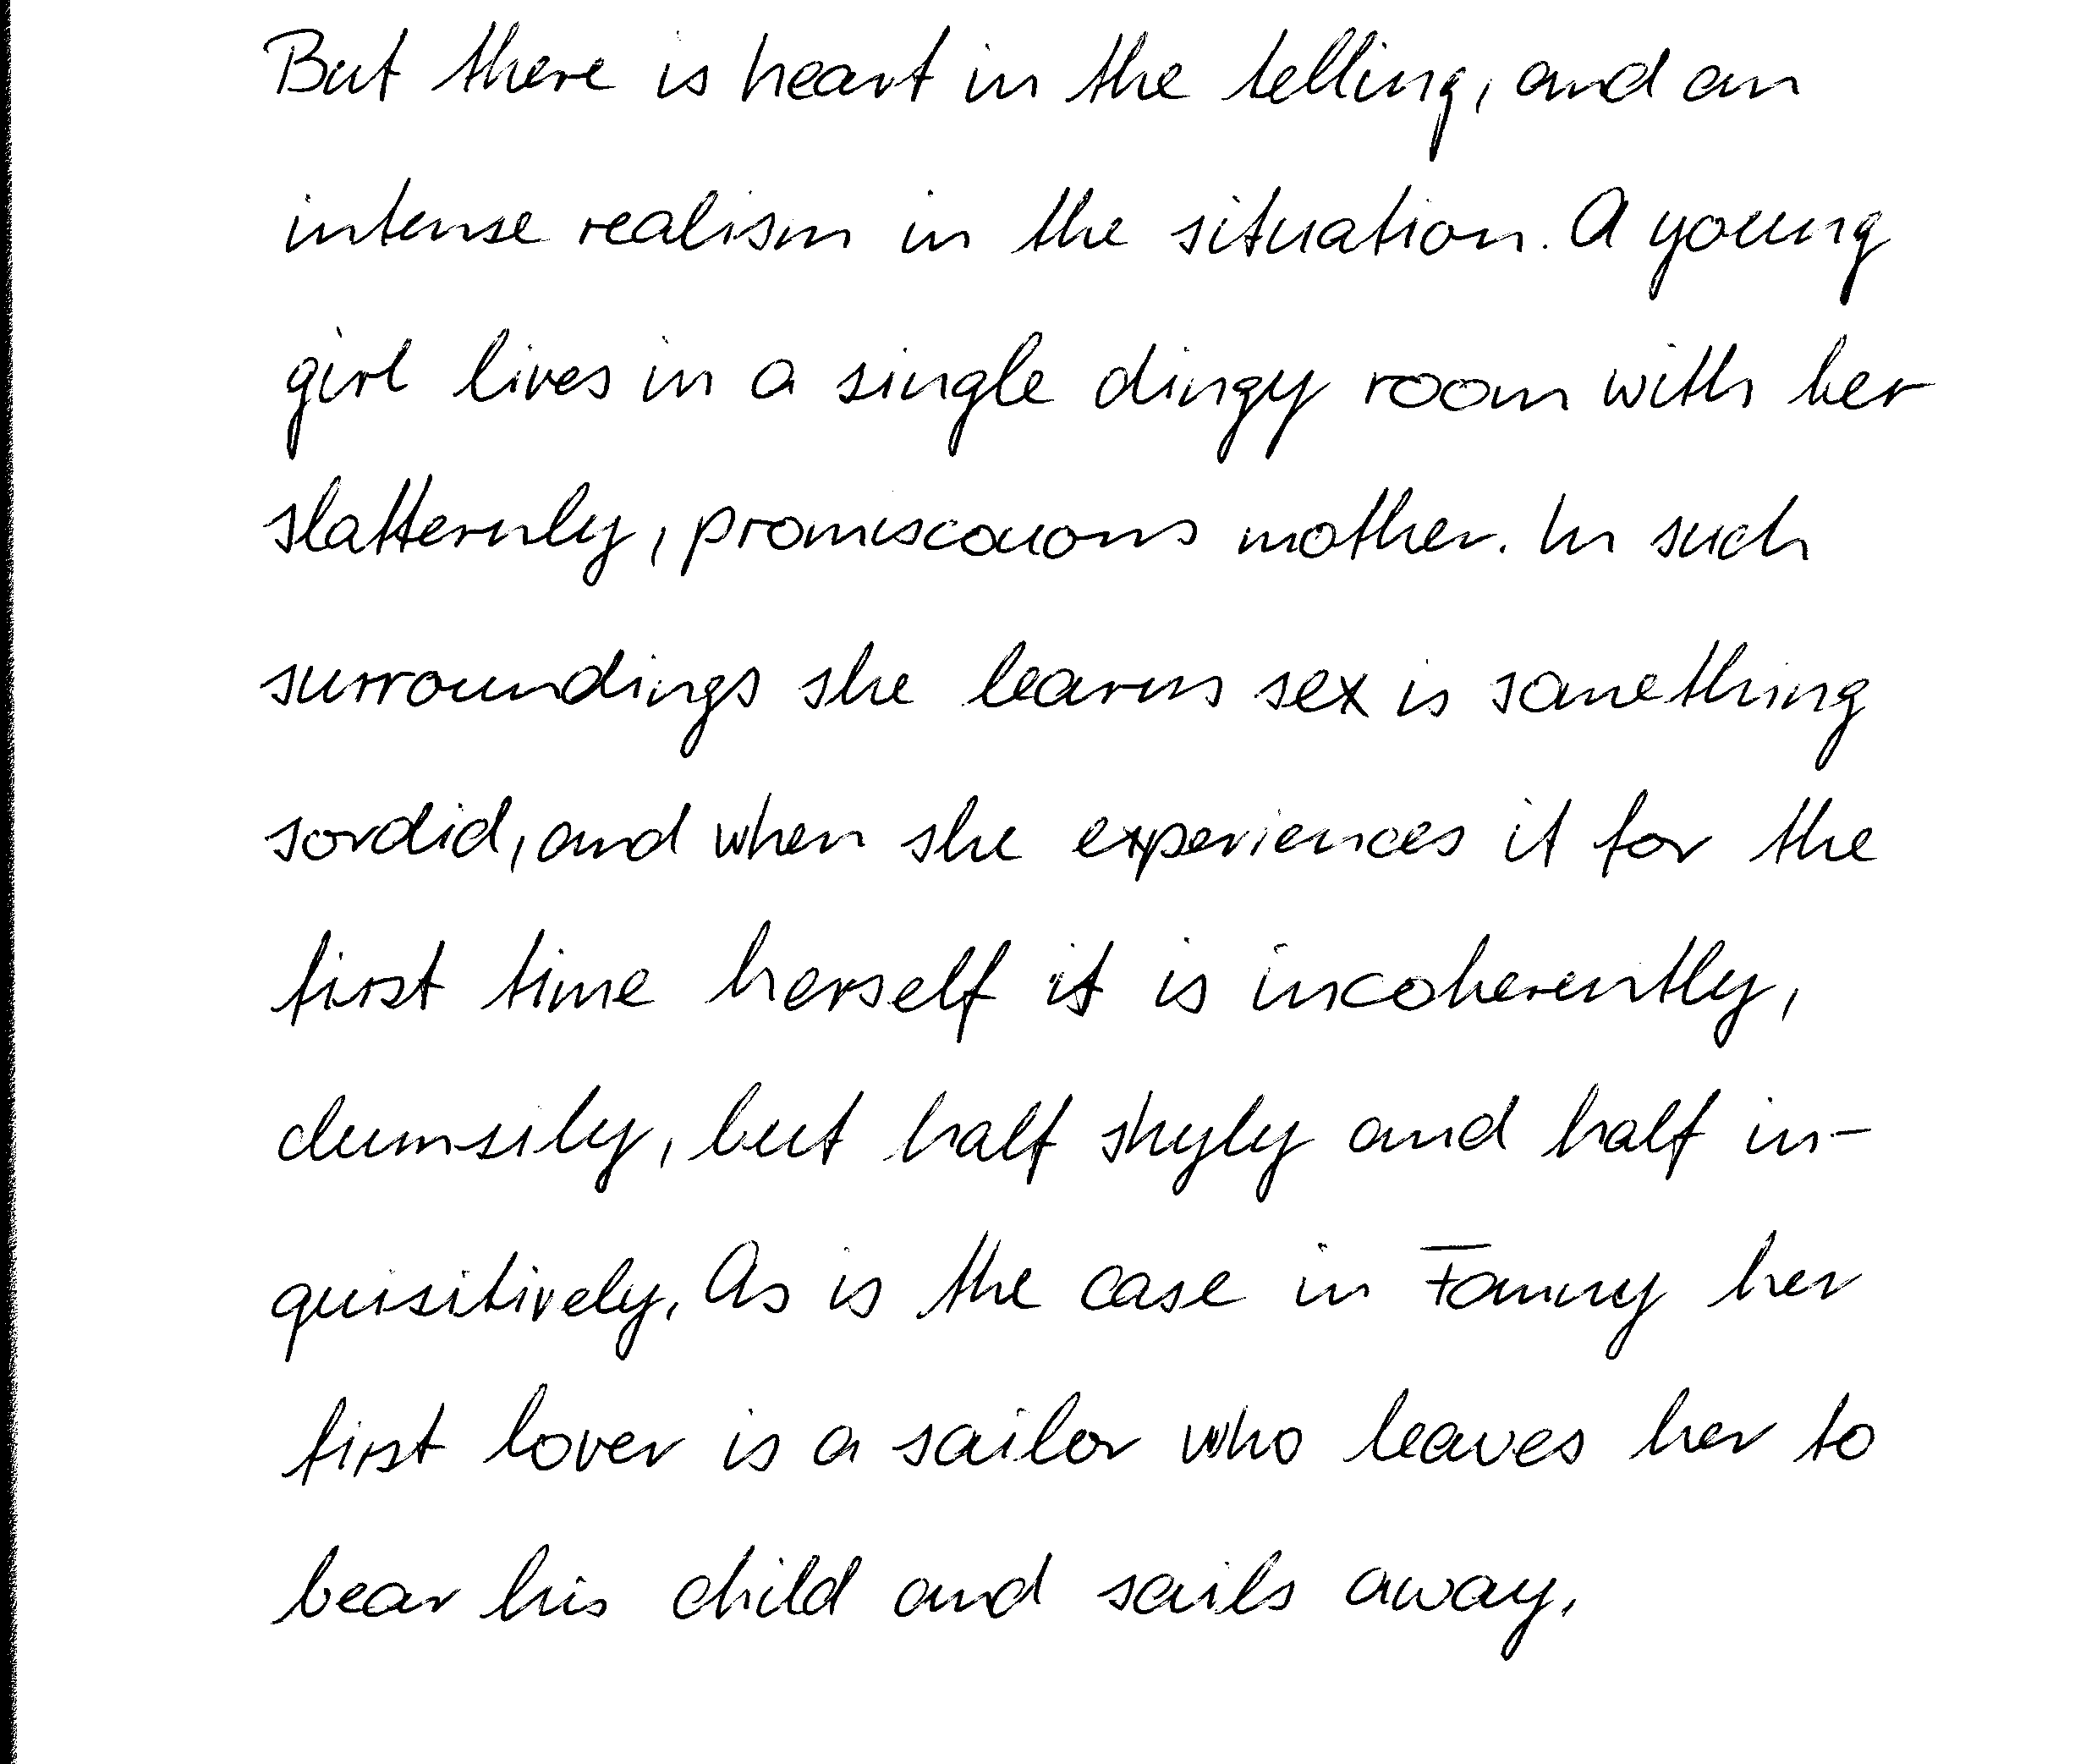 But there is heart in the telling, and an
intense realism in the situation. A young
girl lives in a single dingy room with her
slatternly, promiscouous mother. In such
surroundings she learns sex is something
sordid, and when she experiences it for the
first time herself it is incoherently,
clumsily, but half shyly and half in-
quisitively. As is the case in Fanny her
first lover is a sailor who leaves her to
bear his child and sails away.